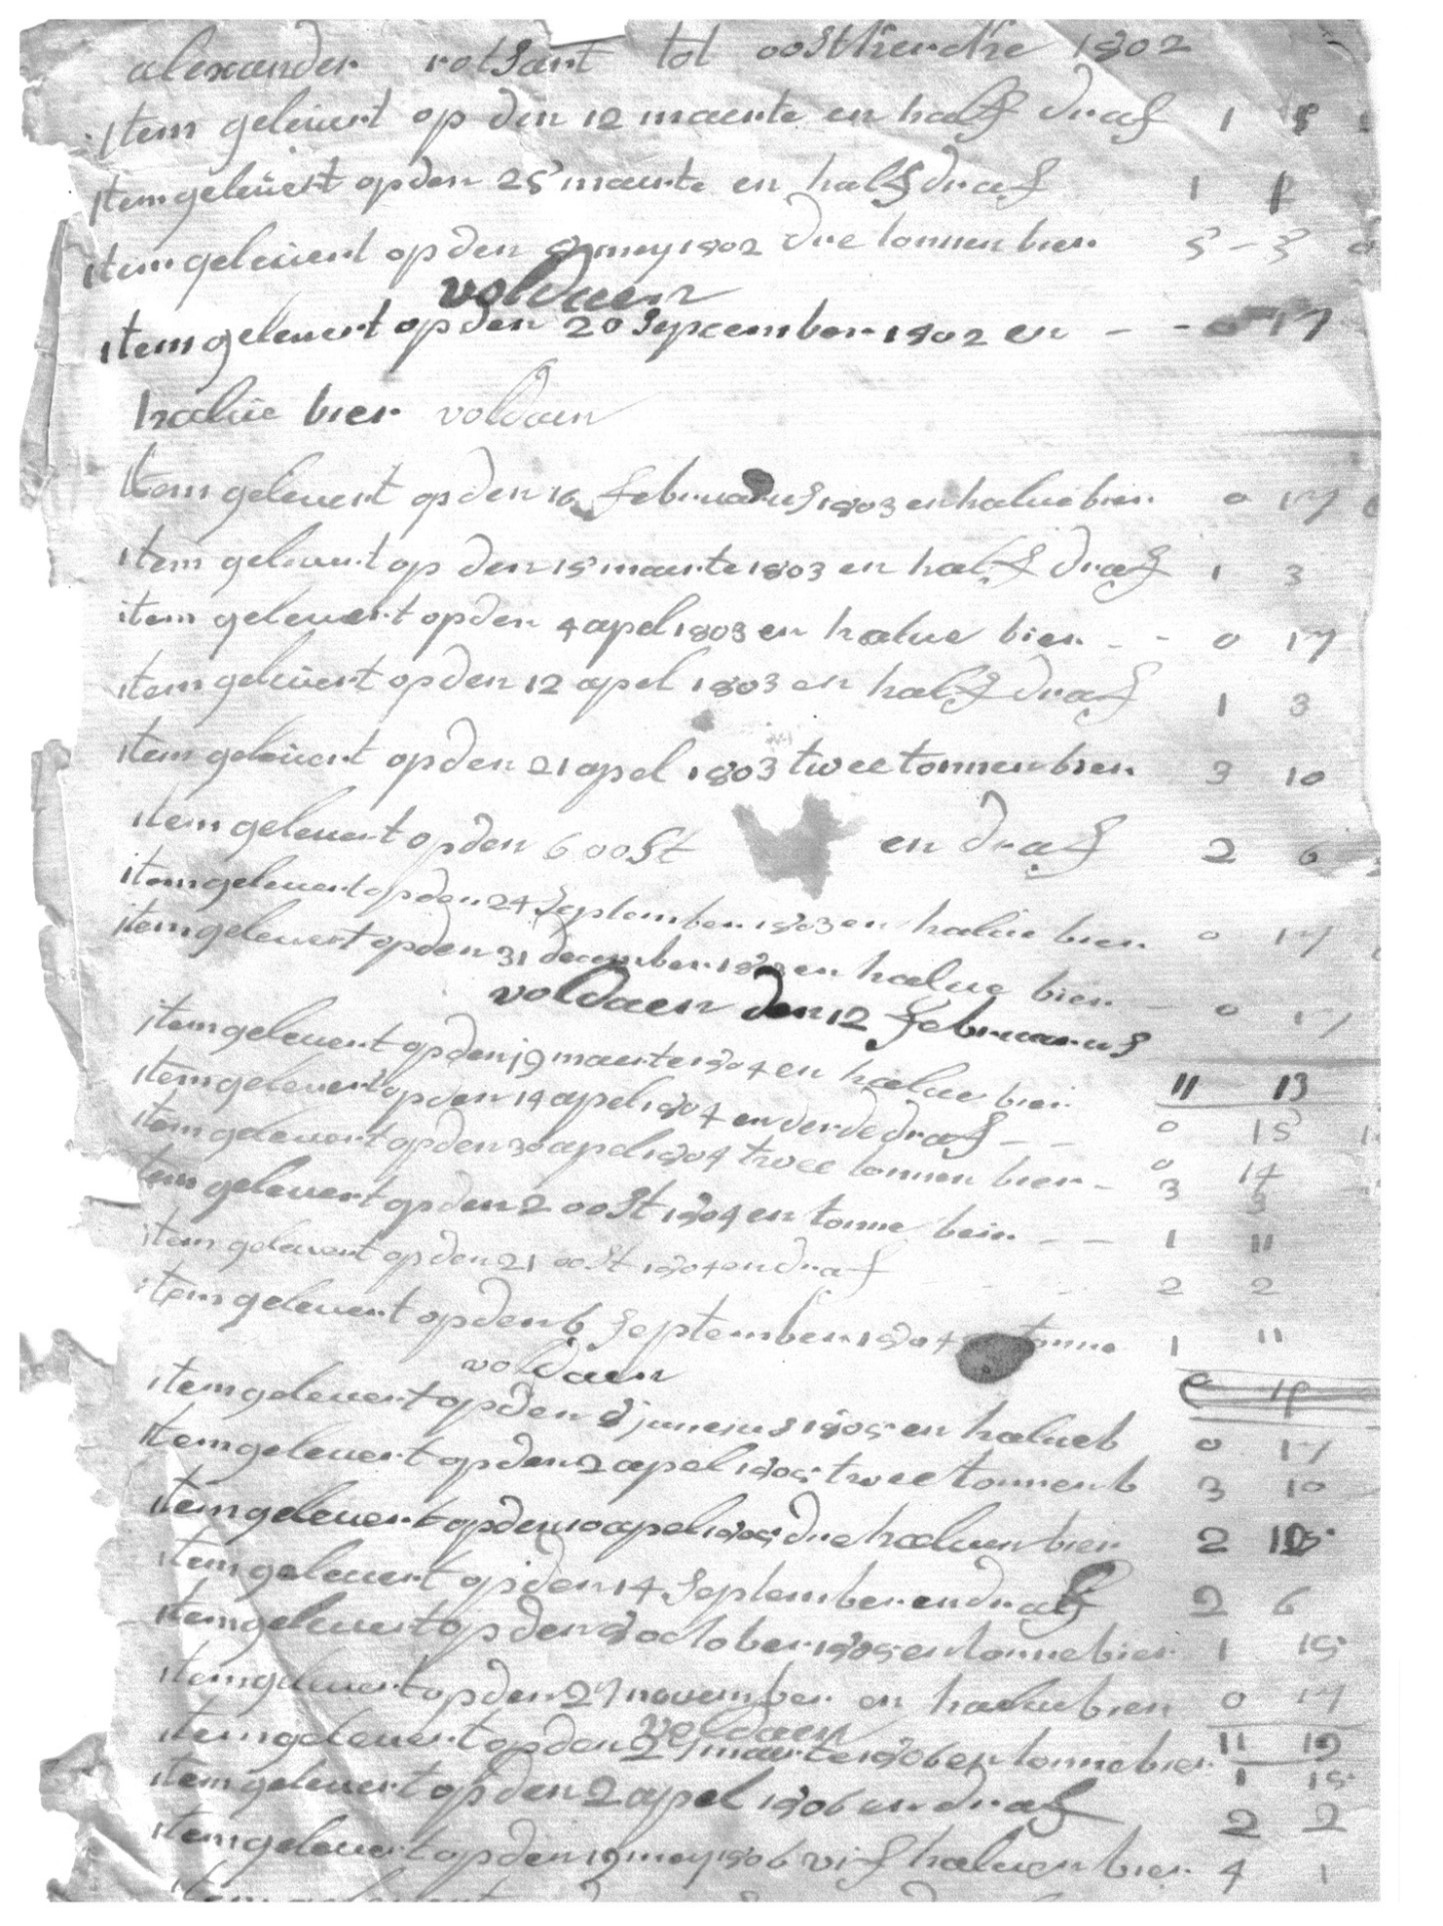 alexander rotsart tot oostkercke 1802
Item geleuert op den 12 maerte en half draf 1
Item geleuert op den 25 maerte en half draf 1
item geleuert op den mey 1802 drie tonnen bier 5 - 5
voldaen
item geleuert op den 20 September 1802 en - - 0 17
halue bier voldaen
Item geleuert op den 16 februarus 1803 en halue bier 0 17
item geleuert op den 15 maerte 1803 en half draf 1 3
item geleuert op den 4 apel 1803 en halue bier - - 0 17
item geleuert op den 12 apel 1803 en half draf 1 3
item geleuert op den 21 apel 1803 twee tonnen bier 3 10
item geleuert op den 6 oost en draf 2 6
item geleuert op den 24 September 1803 en halue bier 0 17
item geleuert op den 31 december 1803 en halue bier - 0 17
voldaen den 12 februarus
item geleuert op den 19 maerte 1804 en halue bier
11 13
item geleuert op den 14 apel 1804 en derde draf - - 0 15
item geleuert op den 30 apel 1804 twee tonnen bier - 0 14
3 5
item geleuert op den 2 oost 1804 en tonne beir - - 1 11
item geleuert op den 21 oost 1804 en draf 2 2
item geleuert op den 6 September 1804 tonne 1 11
voldaen
item geleuert op den 8 juneius 1805 en halue b 0 17
item geleuert op den 2 apel 1805 twee tonnen b 3 10
item geleuert op den 10 apel 1805 drie haluen bier 2
item geleuert op den 14 September en draf 2 6
item geleuert op den 8 october 1805 en tonne bier 1 15
item geleuert op den 27 november en halue bier 0 17
voldaen
11 19
item geleuert op den 27 maerte 1806 en tonne bier 1 15
item geleuert op den 2 apel 1806 en draf 2 2
item geleuert op den 19 mey 1806 vif haluen bier 4 1